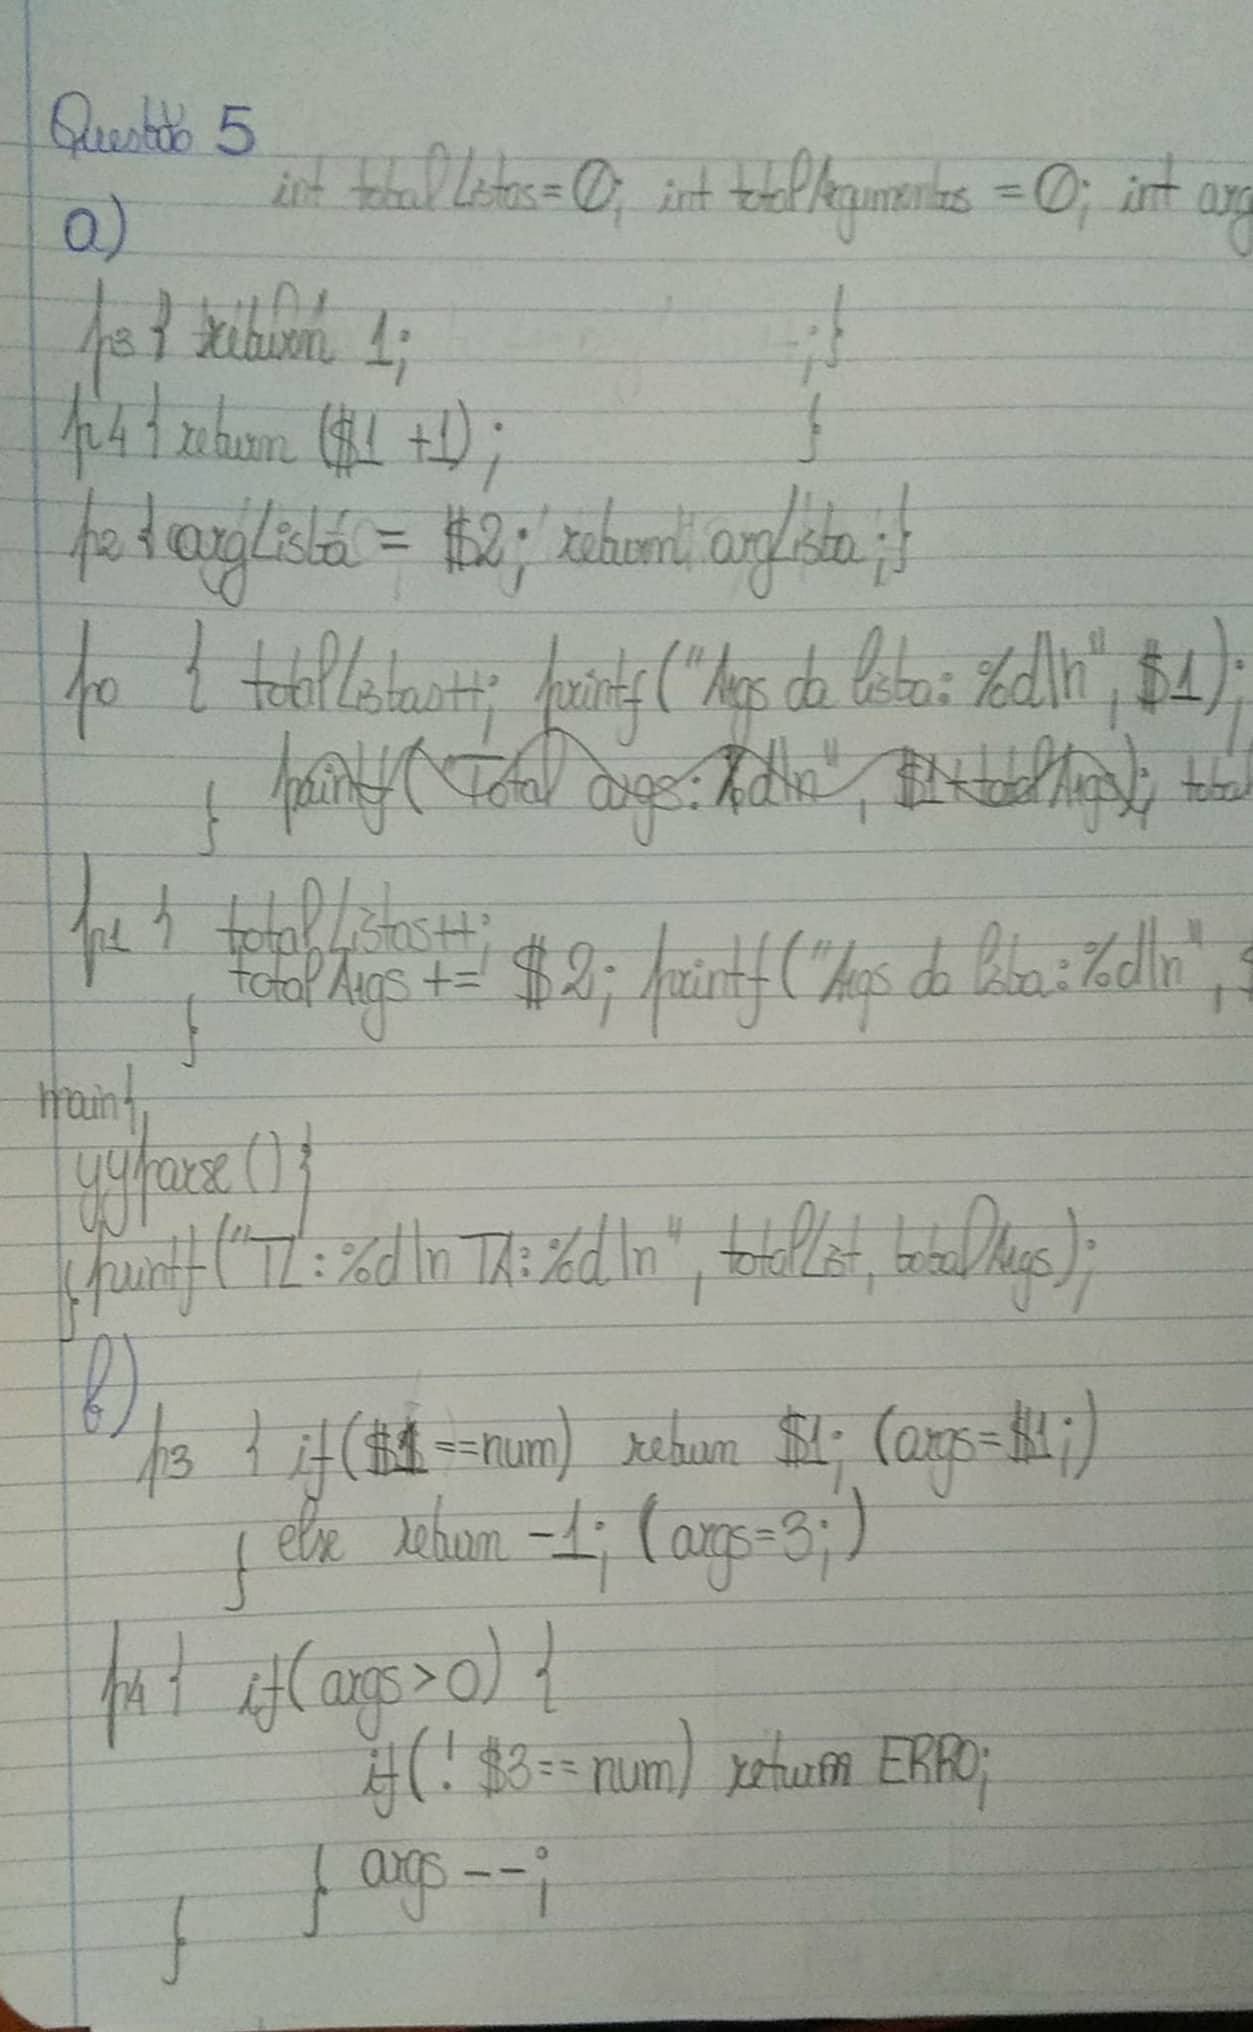 Questão 5
int totalListas=0; int totalArgumentos = 0; int arg
a)
p3 { return 1; ;}
p4 { return ($1 +1); }
p2 { argLista = $2; return argLista ;}
p0 { totalListas++; printf("Args da lista: %d\n", $1);
} printf("Total args: %d\n", $1+totalArgs); total
p1 { totalListas++;
totalArgs += $2; printf("Args da lista: %d\n", $
}
main{
yyparse()}
} printf("TL: %d\n TA: %d\n", totalList, totalArgs);
b)
p3 { if($1==num) return $1; (args=$1;)
} else return -1; (args=3;)
p4 { if(args>0) {
if(! $3==num) return ERRO;
} args--;
}